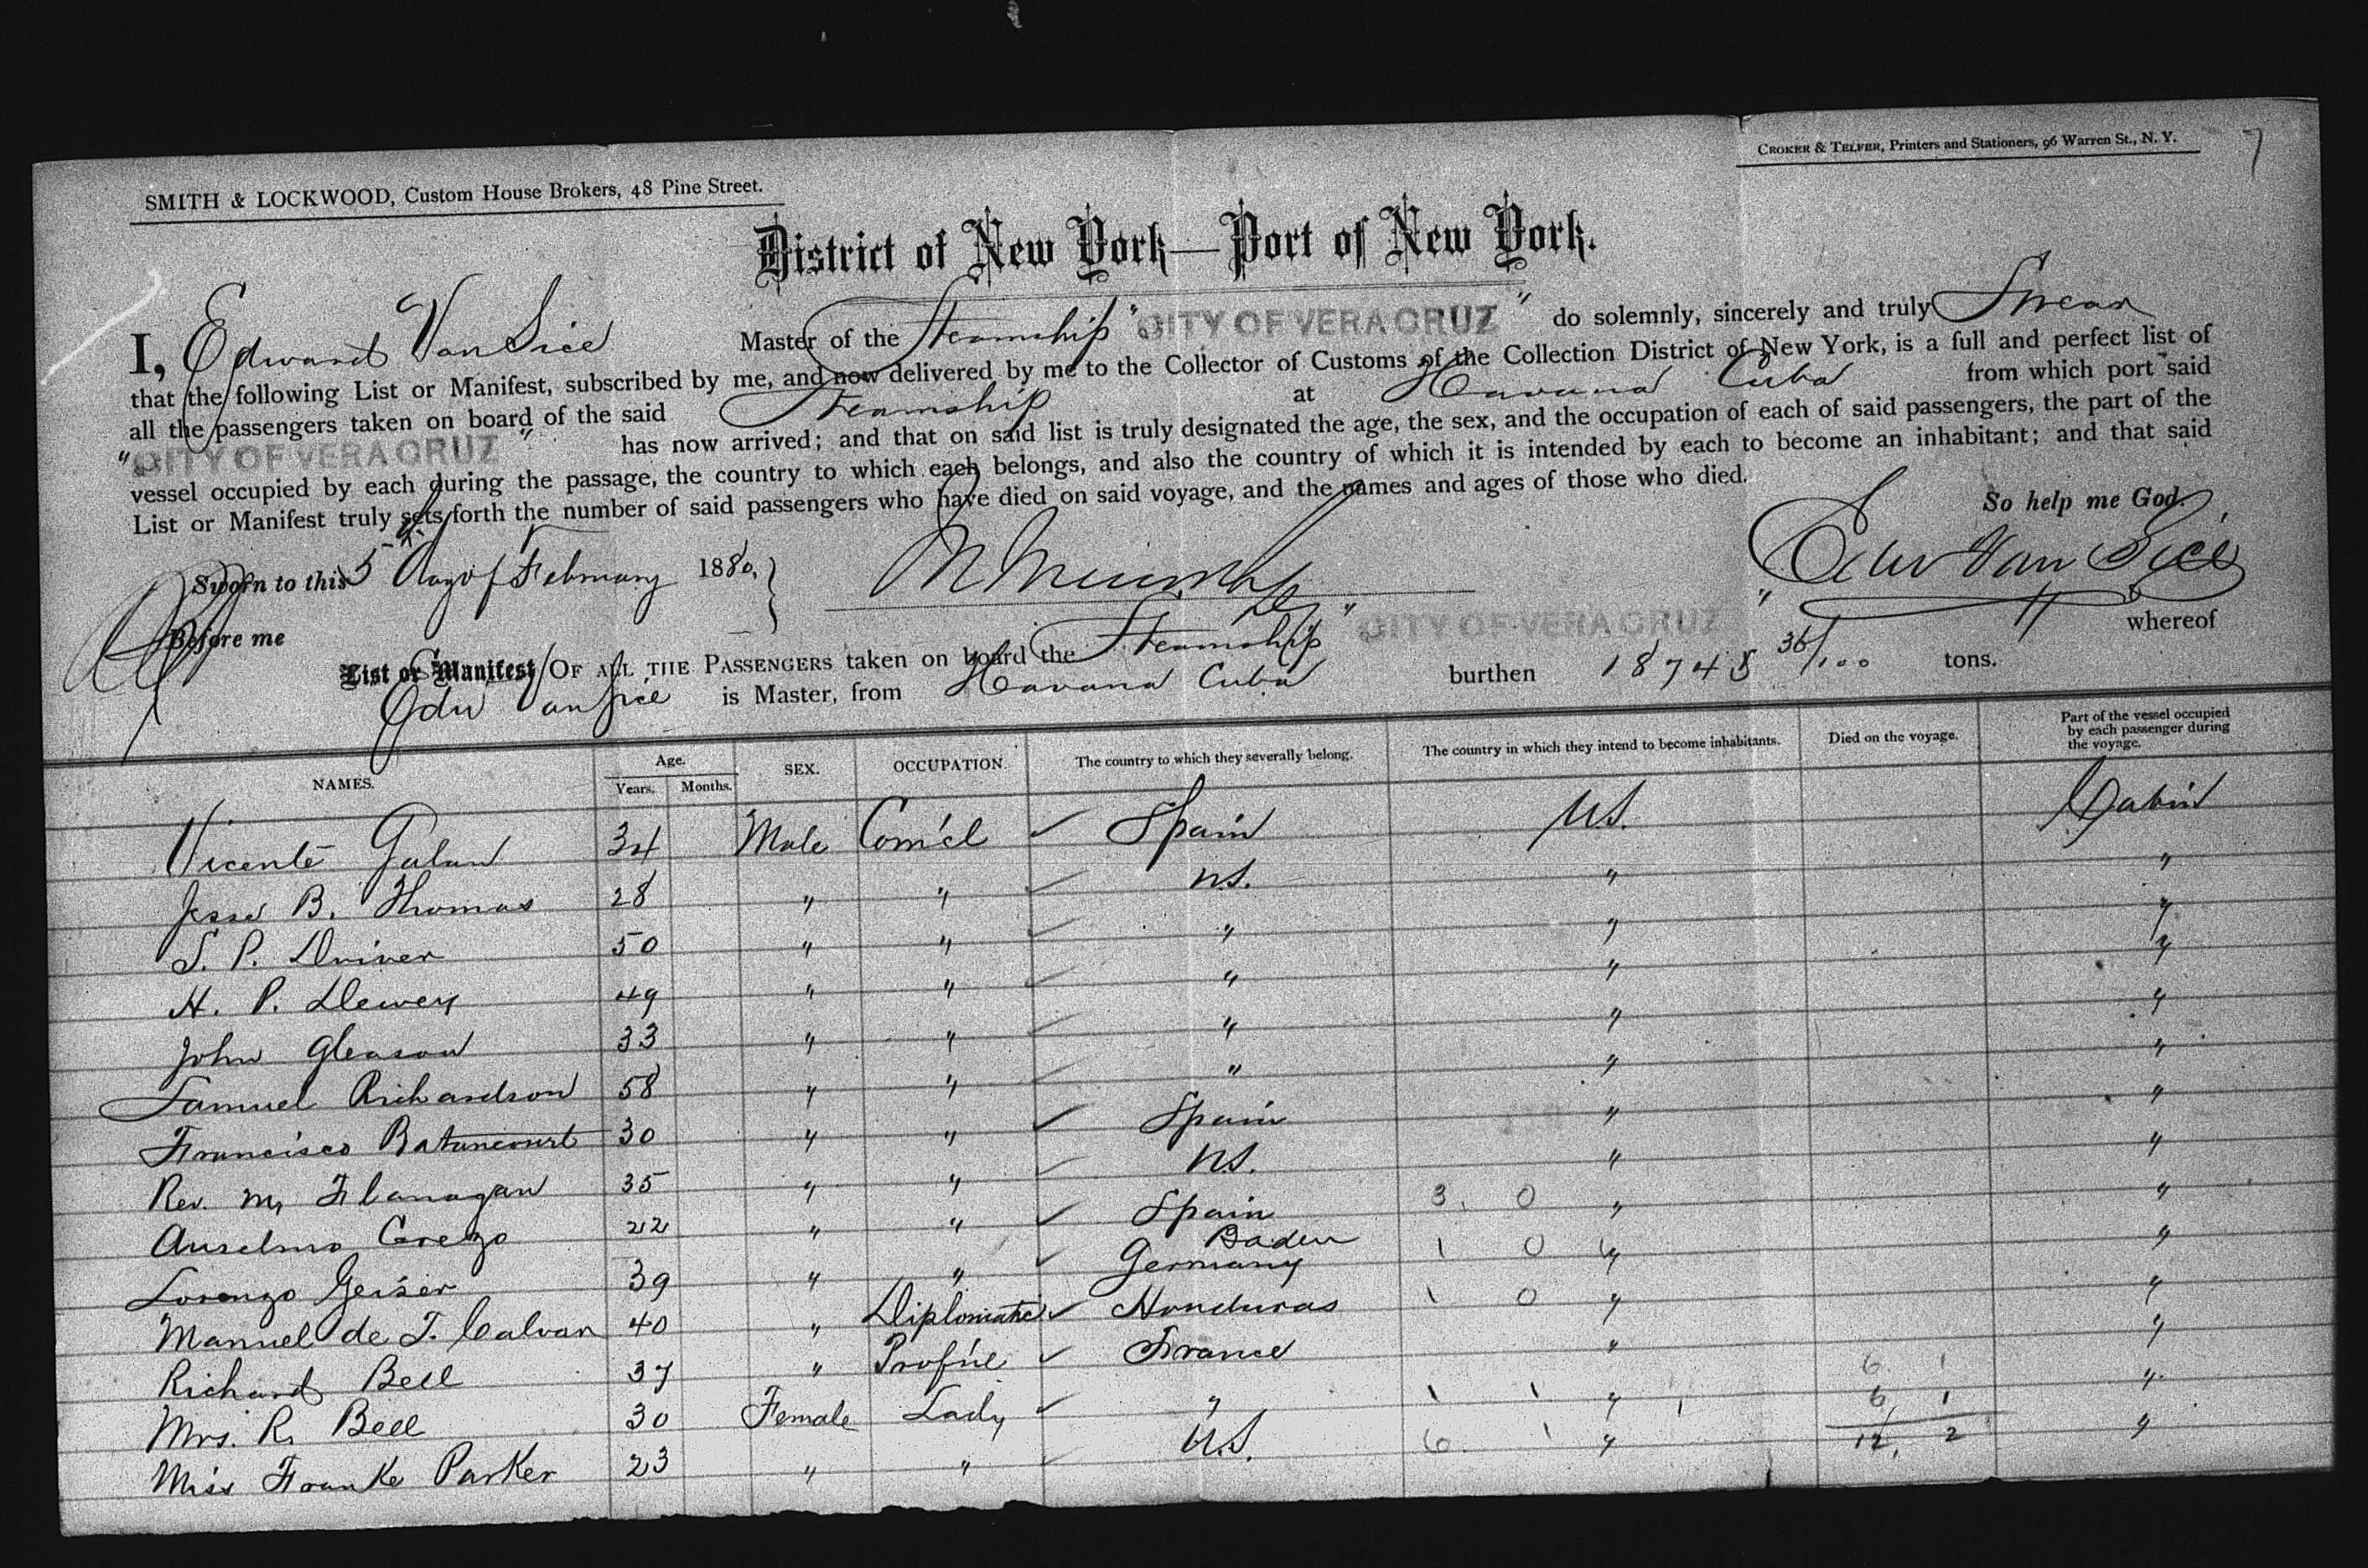 CROKER & TELFER, Printers and Stationers, 96 Warren St., N. Y.
7
SMITH & LOCKWOOD, Custom House Brokers, 48 Pine Street.
District of New York—Port of New York.
I, Edward Van Sice Master of the Steamship "CITY OF VERA CRUZ" do solemnly, sincerely and truly Swear
that the following List or Manifest, subscribed by me, and now delivered by me to the Collector of Customs of the Collection District of New York, is a full and perfect list of
all the passengers taken on board of the said Steamship at Havana Cuba from which port said
"CITY OF VERA CRUZ" has now arrived; and that on said list is truly designated the age, the sex, and the occupation of each of said passengers, the part of the
vessel occupied by each during the passage, the country to which each belongs, and also the country of which it is intended by each to become an inhabitant; and that said
List or Manifest truly sets forth the number of said passengers who have died on said voyage, and the names and ages of those who died.
So help me God.
Sworn to this 5th day of February 1880, Edw Van Sice
Before me
List or Manifest OF ALL THE PASSENGERS taken on board the Steamship "CITY OF VERA CRUZ" whereof
Edw Van Sice is Master, from Havana Cuba burthen 36/100 tons.
NAMES. Age. Years. Months. SEX. OCCUPATION. The country to which they severally belong. The country in which they intend to become inhabitants. Died on the voyage. Part of the vessel occupied by each passenger during the voyage.
Vicente Galan 34 Male Com'cl Spain U.S. Cabin
Jesse B. Thomas 28 " " U.S. " "
S. P. Driver 50 " " " " "
H. P. Dewey 49 " " " " "
John Gleason 33 " " " " "
Samuel Richardson 58 " " " " "
Francisco Batancourt 30 " " Spain " "
Rev. M. Flanagan 35 " " U.S. " "
Anselmo 22 " " Spain 3. 0 " "
Lorenzo Geiser 39 " " Baden Germany 1 0 " "
Manuel de J. Galvan 40 " Diplomatic Honduras 1 0 " "
Richard Bell 37 " Prof'nl France " "
Mrs. R. Bell 30 Female Lady " 1 1 " 1 6 1 6, 1 "
Miss Franke Parker 23 " " U.S. 6. 1 " 12, 2 "